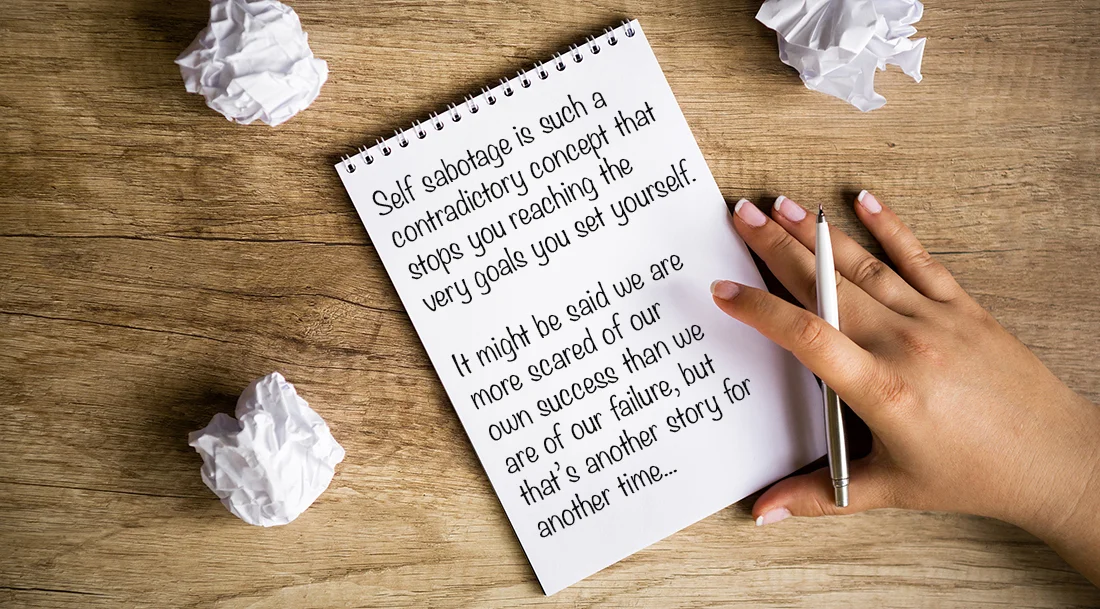 Self sabotage is such a
contradictory concept that
stops you reaching the
very goals you set yourself.
It might be said we are
more scared of our
own success than we
are of our failure, but
that's another story for
another time...